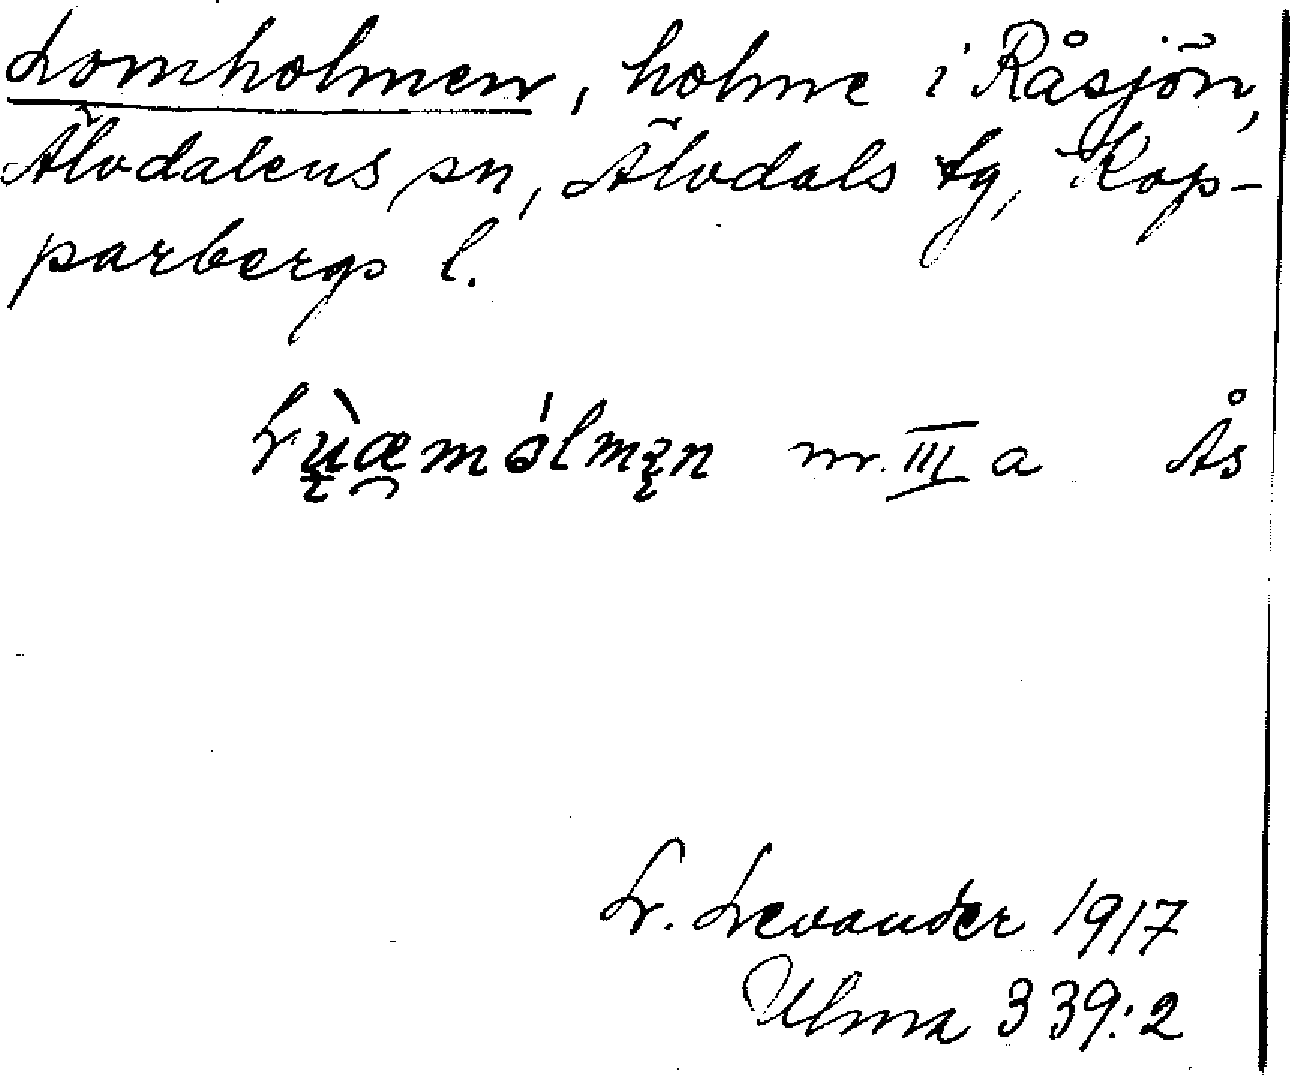 Lomholmen, holme i Råsjön,
Älvdalens sn, Älvdals tg, Kop-
parbergs l.
Lùæmólmęn nr. III a Ås
L. Levander 1917
Ulma 339:2